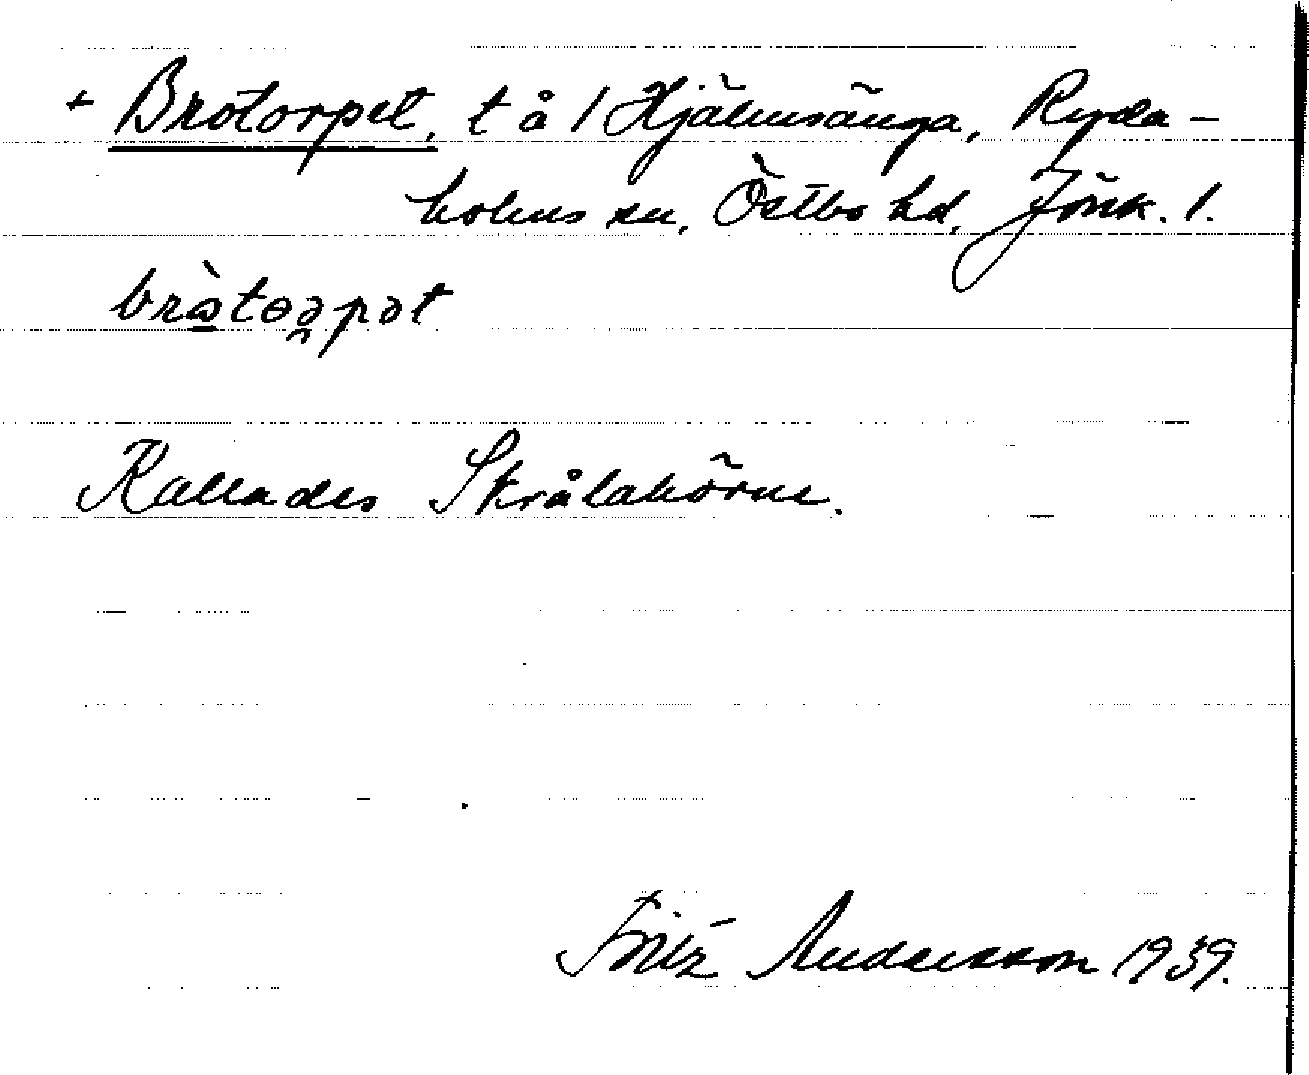 + Brotorpet, t å 1 Hjälmsänga, Ryda-
holms sn, Östbo hd, Jönk. l.
bròtoəpət
Kallades Skrålahörne.
Fritz Andersson 1939.